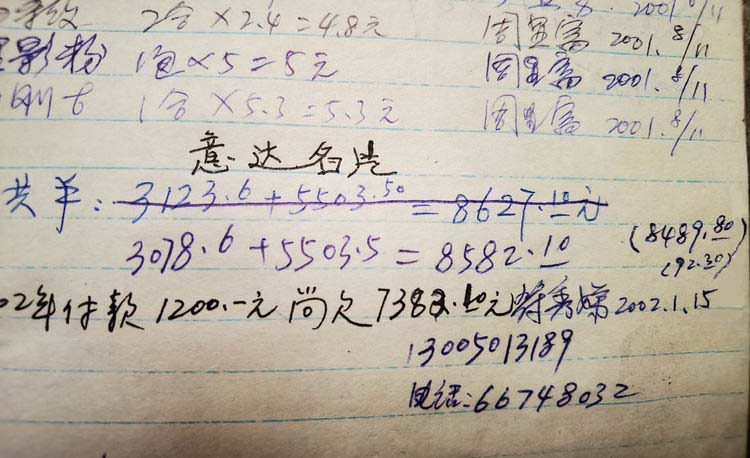 2合×2.4=4.8元 2001.8/11
影粉 1包×5=5元 周 富 2001.8/11
1合×5.3=5.3元 周 富 2001.8/11
意达名片
共羊: 3123.6+5503.50=8627.10元
3078.6+5503.5=8582.10 (8489.80)
(92.30)
02年付款1200.-元尚欠7382.10元 2002.1.15
13005013189
电话:66748032